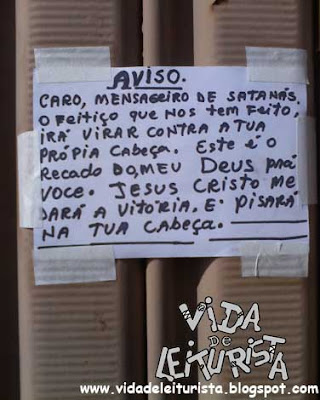 AVISO.
CARO, MENSAGEIRO DE SATANÁS.
O FEITIÇO QUE NOS TEM FEITO,
IRÁ VIRAR CONTRA A TUA
PRÓPIA CABEÇA. ESTE É O
RECADO DO, MEU DEUS PRÁ
VOCE. JESUS CRISTO ME
DARÁ A VITÓRIA, E PISARÁ
NA TUA CABEÇA.
VIDA
DE
LEITURISTA
www.vidadeleiturista.blogspot.com